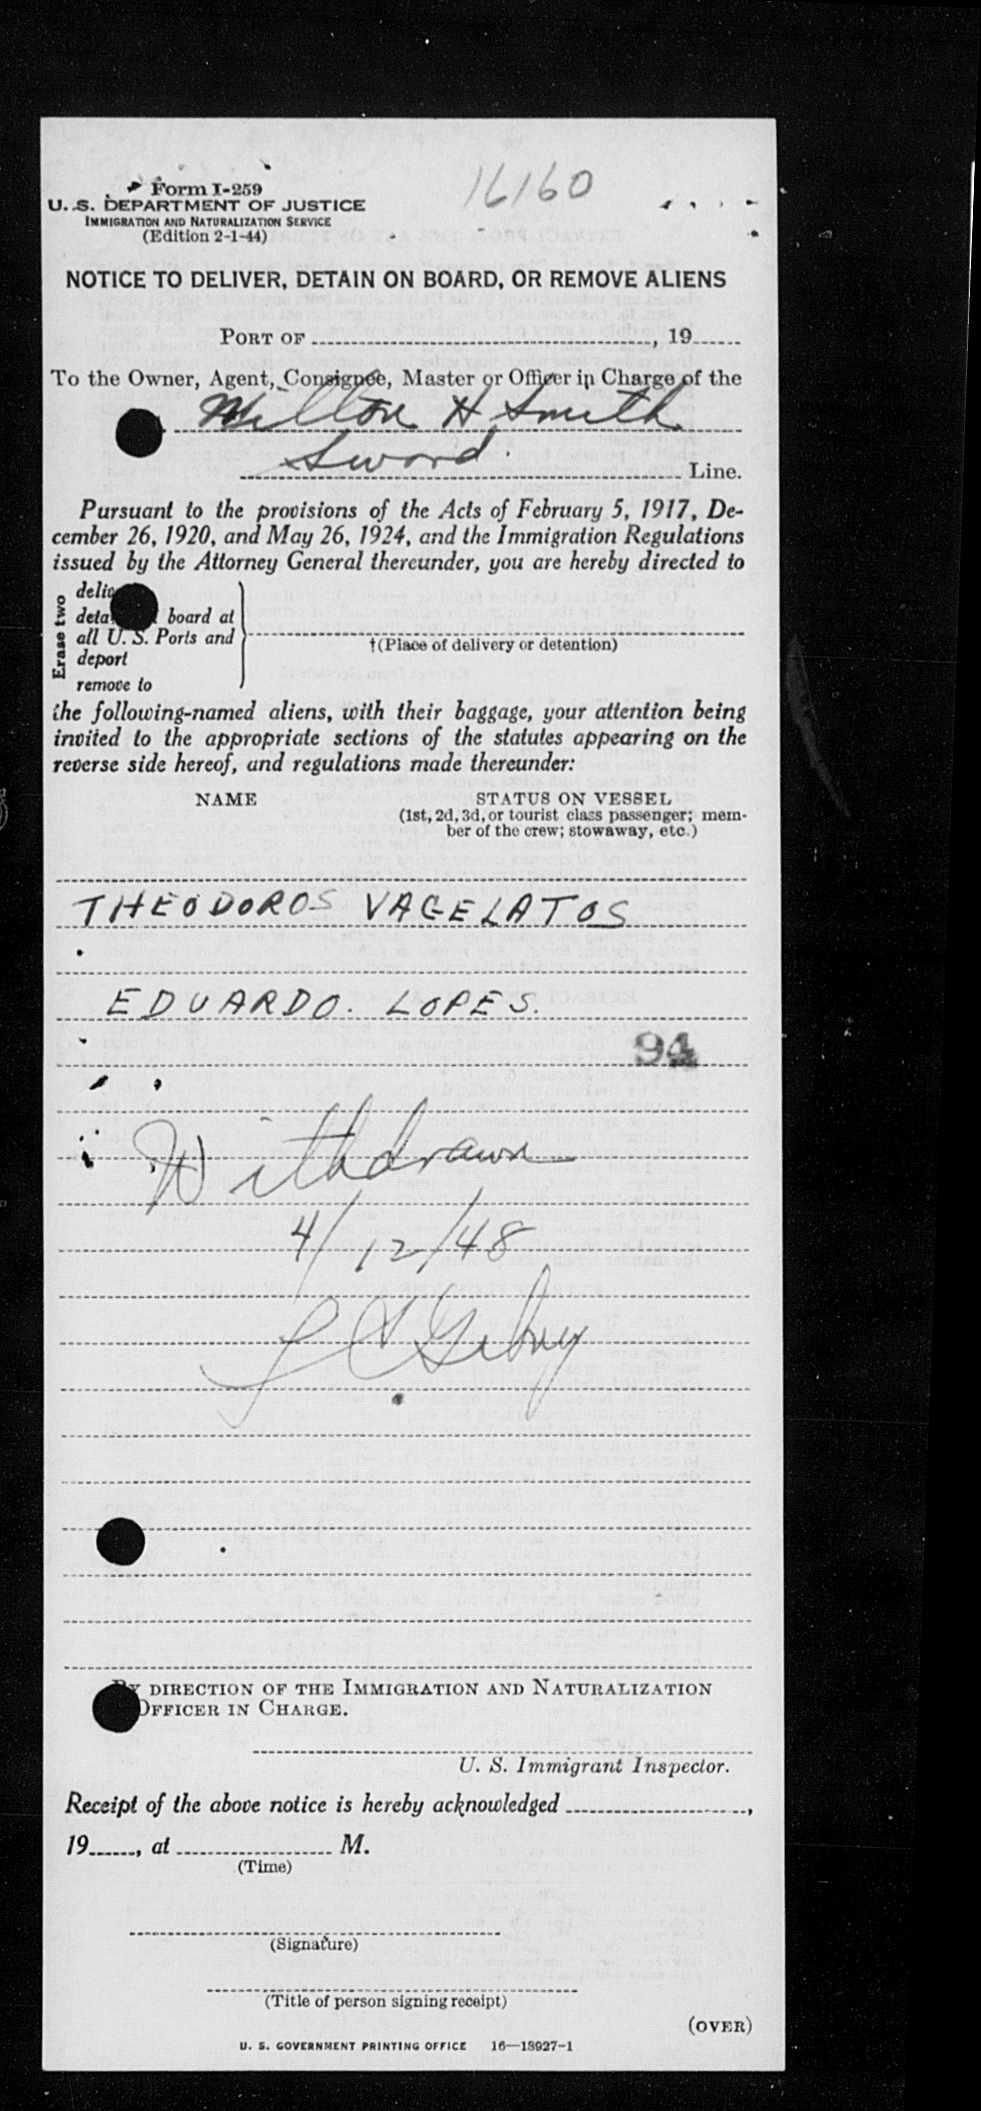 16160
Form I-259
U. S. DEPARTMENT OF JUSTICE
IMMIGRATION AND NATURALIZATION SERVICE
(Edition 2-1-44)
NOTICE TO DELIVER, DETAIN ON BOARD, OR REMOVE ALIENS
PORT OF , 19
To the Owner, Agent, Consignee, Master or Officer in Charge of the
Milton H Smith
Sword. Line.
Pursuant to the provisions of the Acts of February 5, 1917, De-
cember 26, 1920, and May 26, 1924, and the Immigration Regulations
issued by the Attorney General thereunder, you are hereby directed to
Erase two
board at
all U. S. Ports and
deport
remove to
†(Place of delivery or detention)
the following-named aliens, with their baggage, your attention being
invited to the appropriate sections of the statutes appearing on the
reverse side hereof, and regulations made thereunder:
NAME STATUS ON VESSEL
(1st, 2d, 3d, or tourist class passenger; mem-
ber of the crew; stowaway, etc.)
THEODOROS VAGELATOS
EDUARDO. LOPES.
94
Withdrawn
4/12/48
BY DIRECTION OF THE IMMIGRATION AND NATURALIZATION
OFFICER IN CHARGE.
U. S. Immigrant Inspector.
Receipt of the above notice is hereby acknowledged ,
19 , at M.
(Time)
(Signature)
(Title of person signing receipt)
(OVER)
U. S. GOVERNMENT PRINTING OFFICE 16—18927-1